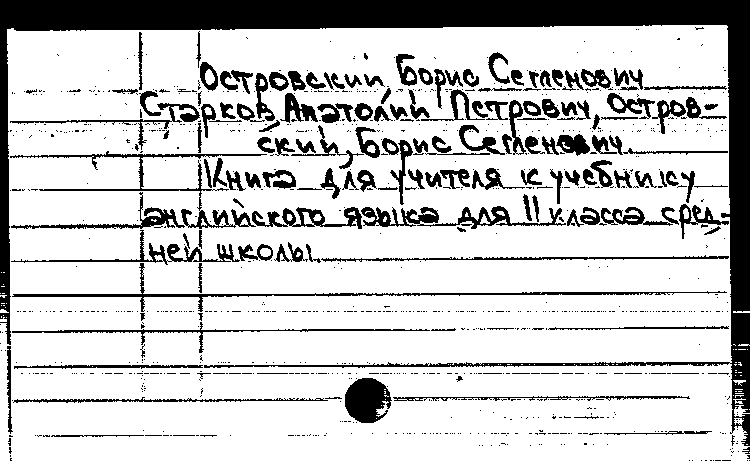 Островский, Борис Семенович
Старков, Анатолий Петрович, Остров-
ский, Борис Семенович.
Книга для учителя к учебнику
английского языка для 11 класса сред-
ней школы.